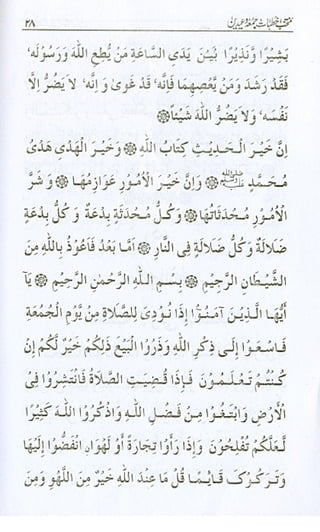 ٣٨ منتخب خطبات جمعہ وعیدین
بَشِيْرًا وَّنَذِيْرًا بَيْنَ يَدَيِ السَّاعَةِ مَنْ يُّطِعِ اللّٰهَ وَرَسُوْلَهٗ
فَقَدْ رَشَدَ وَمَنْ يَّعْصِهِمَا فَاِنَّهٗ قَدْ غَوٰى وَ اِنَّهٗ لَا يَضُرُّ اِلَّا
نَفْسَهٗ وَلَا يَضُرُّ اللّٰهَ شَيْئًا ۞
اِنَّ خَيْرَ الْحَدِيْثِ كِتَابُ اللّٰهِ ۞ وَخَيْرَ الْهَدْىِ هَدْىُ
مُحَمَّدٍ ﷺ ۞ وَاِنَّ خَيْرَ الْاُمُوْرِ عَوَازِمُهَا ۞ وَ شَرَّ
الْاُمُوْرِ مُحْدَثَاتُهَا ۞ وَكُلُّ مُحْدَثَةٍ بِدْعَةٌ وَ كُلُّ بِدْعَةٍ
ضَلَالَةٌ وَكُلُّ ضَلَالَةٍ فِى النَّارِ ۞ اَمَّا بَعْدُ فَاَعُوْذُ بِاللّٰهِ مِنَ
الشَّيْطَانِ الرَّجِيْمِ ۞ بِسْمِ اللّٰهِ الرَّحْمٰنِ الرَّحِيْمِ ۞ يَآ
اَيُّهَا الَّذِيْنَ آمَنُوْٓا اِذَا نُوْدِىَ لِلصَّلَاةِ مِنْ يَّوْمِ الْجُمُعَةِ
فَاسْعَوْا اِلٰى ذِكْرِ اللّٰهِ وَذَرُوا الْبَيْعَ ذٰلِكُمْ خَيْرٌ لَّكُمْ اِنْ
كُنْتُمْ تَعْلَمُوْنَ فَاِذَا قُضِيَتِ الصَّلَاةُ فَانْتَشِرُوْا فِى
الْاَرْضِ وَابْتَغُوْا مِنْ فَضْلِ اللّٰهِ وَاذْكُرُوا اللّٰهَ كَثِيْرًا
لَّعَلَّكُمْ تُفْلِحُوْنَ وَاِذَا رَاَوْا تِجَارَةً اَوْ لَهْوَا انْفَضُّوْا اِلَيْهَا
وَتَرَكُوْكَ قَآئِمًا قُلْ مَا عِنْدَ اللّٰهِ خَيْرٌ مِنَ اللَّهْوِ وَمِنَ